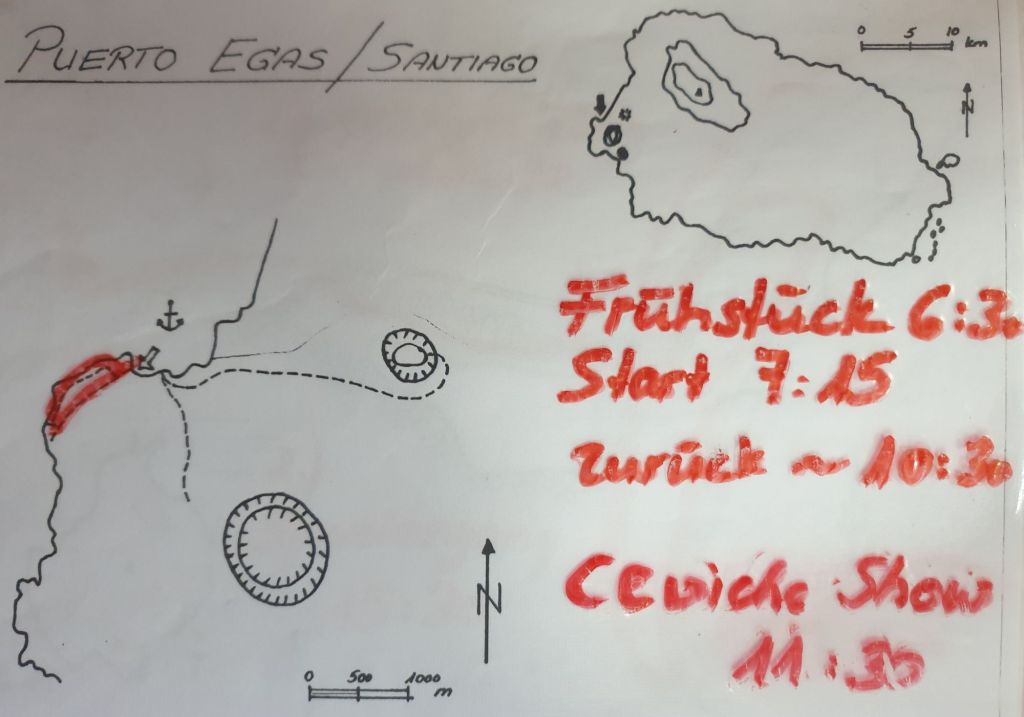 PUERTO EGAS / SANTIAGO
0 5 10 km
N
Frühstück 6:30
Start 7:15
Zurück ~ 10:30
Ceviche Show
11:30
N
0 500 1000 m